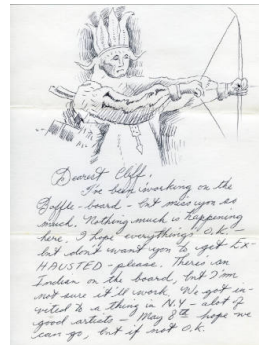 Dearest Cliff,
I've been working on the
Boffle-board - but miss you so
much. Nothing much is happening
here. I hope everything's O.K. -
but don't want you to get EX-
HAUSTED - please. There's an
Indian on the board, but I'm
not sure it'll work. We got in-
vited to a thing in N.Y. - alot of
good artists - May 8th hope we
can go, but if not O.K.